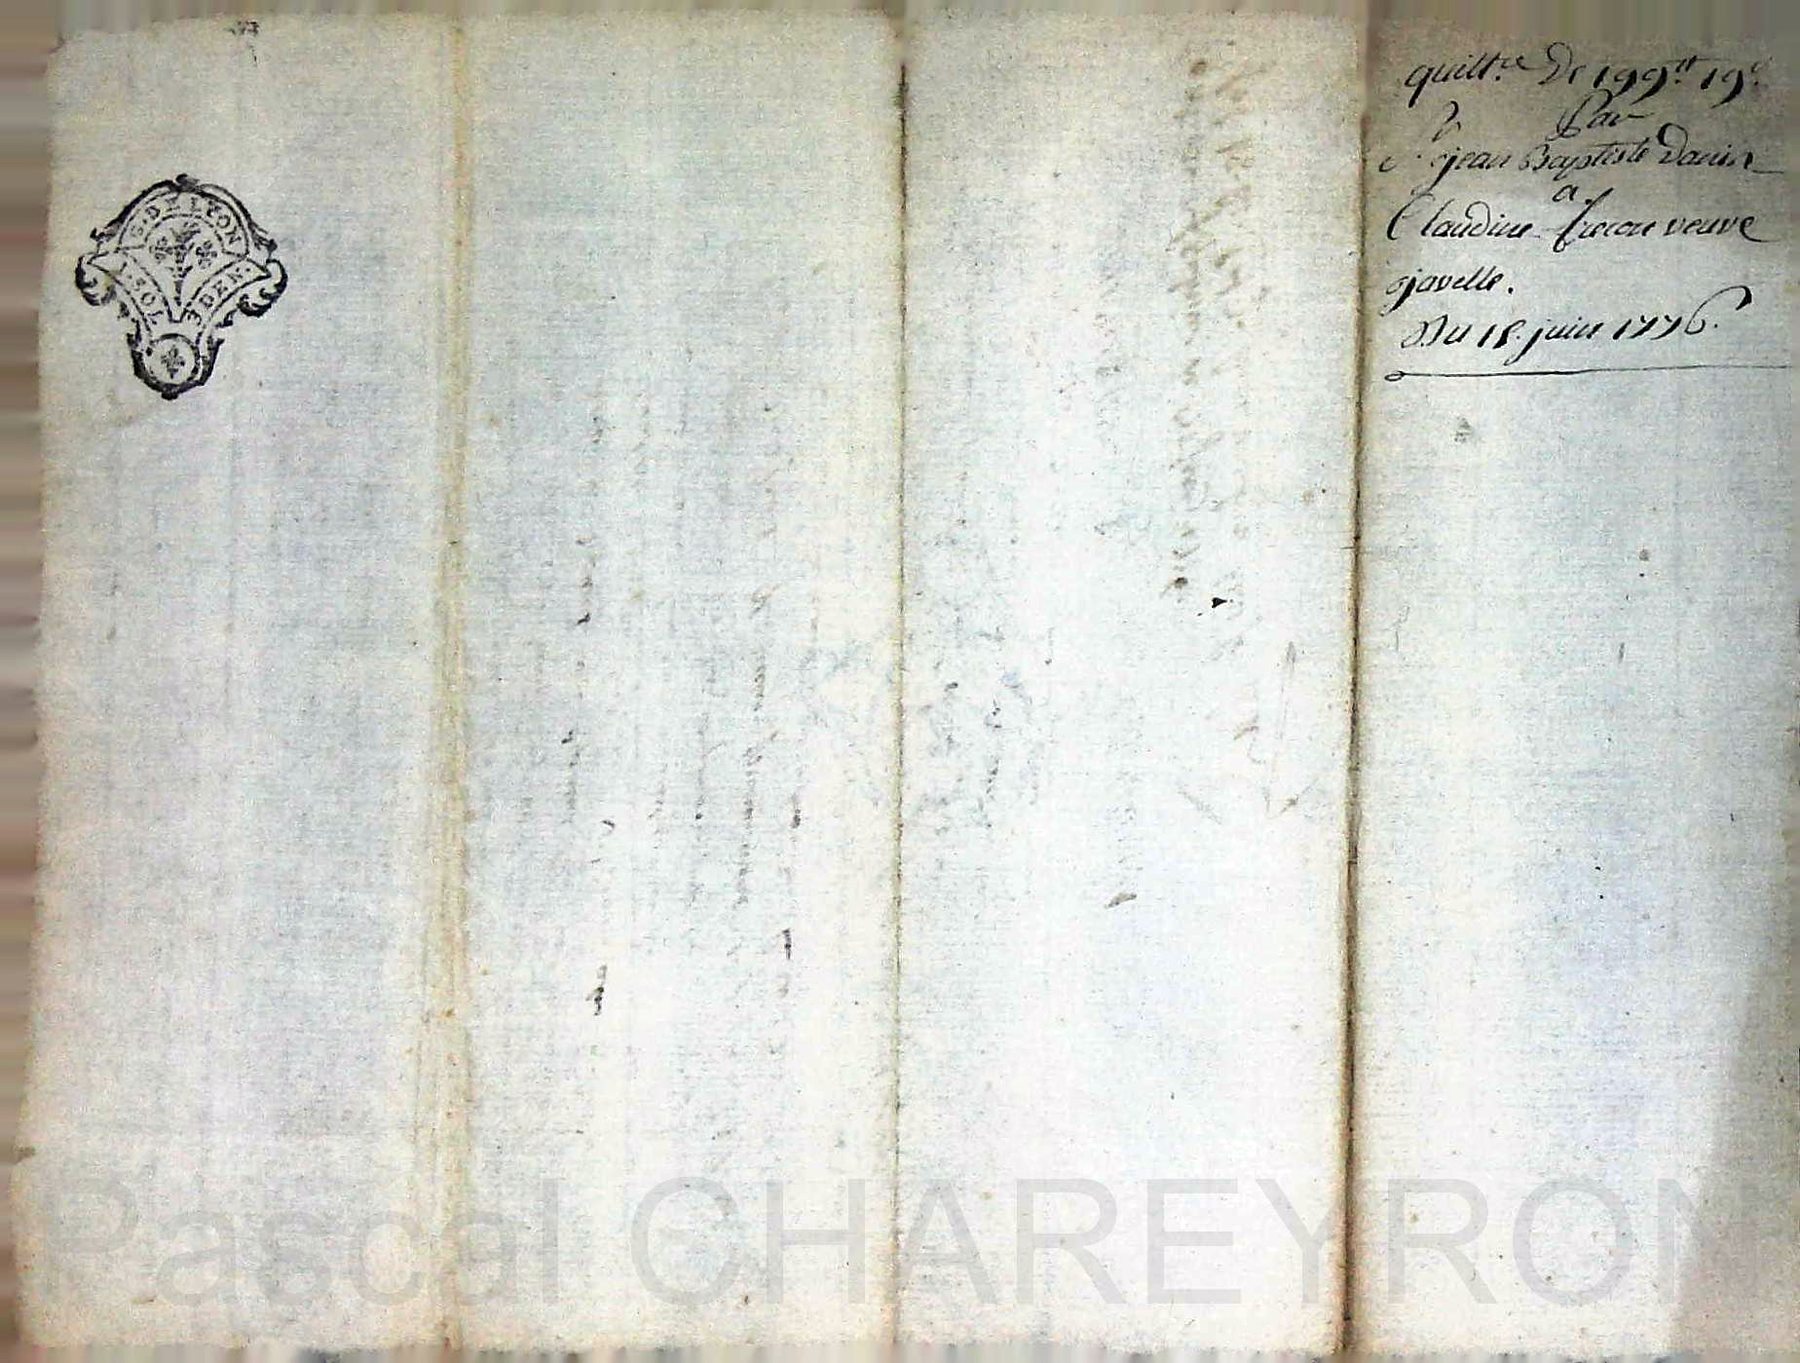 G. DE LYON
1. SOL 3. DEN.
quitt.ce De 199tt 19s
Par
Sr jean Baptiste
a
Claudine veuve
javelle.
Du 18. juin 1776.
Pascal CHAREYRON